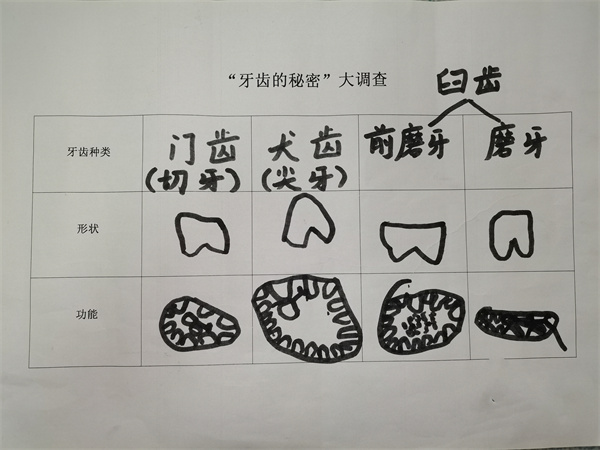 “牙齿的秘密”大调查
臼齿
牙齿种类 门齿 犬齿 前磨牙 磨牙
(切牙) (尖牙)
形状
功能